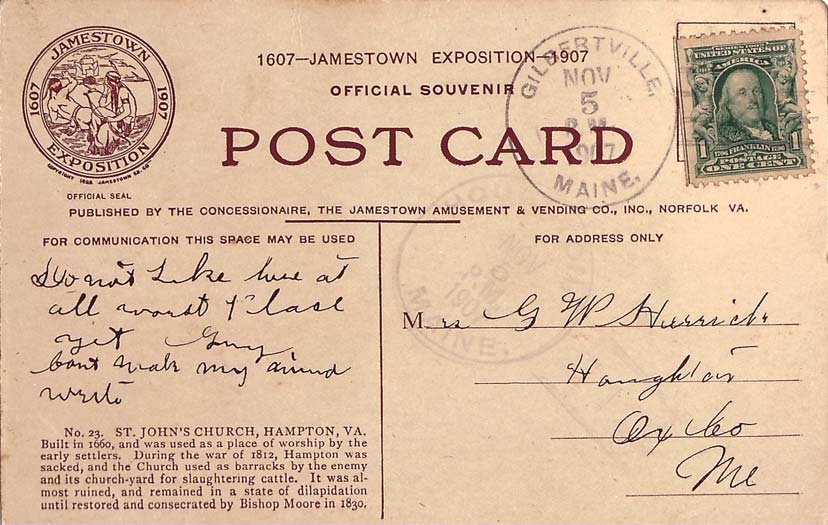 JAMESTOWN
1607 1907
EXPOSITION
COPYRIGHT 1903 JAMESTOWN EX. CO.
OFFICIAL SEAL
1607—JAMESTOWN EXPOSITION—1907
OFFICIAL SOUVENIR
POST CARD
GILBERTVILLE,
NOV
5
P.M.
1907
MAINE.
SERIES 1902
UNITED STATES OF
AMERICA
1 FRANKLIN 1
POSTAGE
ONE CENT
PUBLISHED BY THE CONCESSIONAIRE, THE JAMESTOWN AMUSEMENT & VENDING CO., INC., NORFOLK VA.
FOR COMMUNICATION THIS SPACE MAY BE USED
Do not Like here at
all worst Place
yet Guy
cant make my mind
write
No. 23. ST. JOHN'S CHURCH, HAMPTON, VA.
Built in 1660, and was used as a place of worship by the
early settlers. During the war of 1812, Hampton was
sacked, and the Church used as barracks by the enemy
and its church-yard for slaughtering cattle. It was al-
most ruined, and remained in a state of dilapidation
until restored and consecrated by Bishop Moore in 1830.
FOR ADDRESS ONLY
NOV
P.M.
MAINE.
Mrs G W Herrick
Houghton
Ox Co
Me